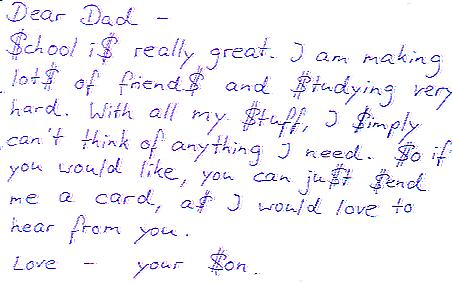 Dear Dad –
$chool i$ really great. I am making
lot$ of friend$ and $tudying very
hard. With all my $tuff, I $imply
can't think of anything I need. $o if
you would like, you can ju$t $end
me a card, a$ I would love to
hear from you.
Love – your $on.